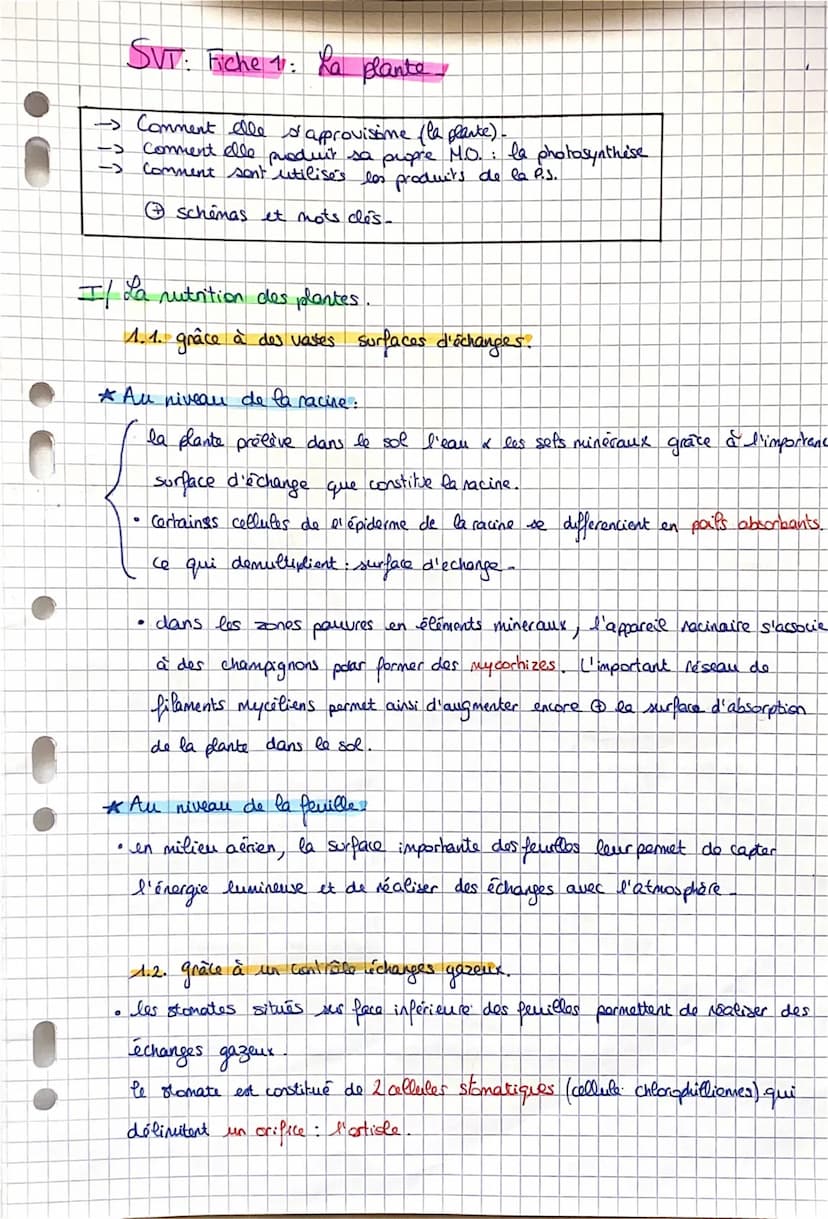 SVT: Fiche 1: La plante
→ Comment elle s'approvisime (la plante).
→ Comment elle produit sa propre MO. : la photosynthèse
→ Comment sont utilisés les produits de la P.S.
⊕ schémas et mots clés.
I/ La nutrition des plantes.
1.1. grâce à des vastes surfaces d'échanges.
* Au niveau de la racine:
la plante prélève dans le sol l'eau & les sels minéraux grâce à l'importanc
surface d'échange que constitue la racine.
• certaines cellules de l'épiderme de la racine se differencient en poils absorbants.
ce qui demultiplient : surface d'echange.
• dans les zones pauvres en éléments mineraux, l'appareil racinaire s'associe
à des champignons pour former des mycorhizes. L'important réseau de
filaments mycéliens permet ainsi d'augmenter encore ⊕ la surface d'absorption
de la plante dans le sol.
* Au niveau de la feuille:
• en milieu aérien, la surface importante des feuilles leur permet de capter
l'énergie lumineuse et de réaliser des échanges avec l'atmosphère.
1.2. grâce à un contrôle échanges gazeux.
• les stomates situés sur face inférieure des feuilles permettent de réaliser des
échanges gazeux.
le stomate est constitué de 2 cellules stomatiques (cellule chlorophilliennes) qui
délimitent un orifice : l'ostiole.